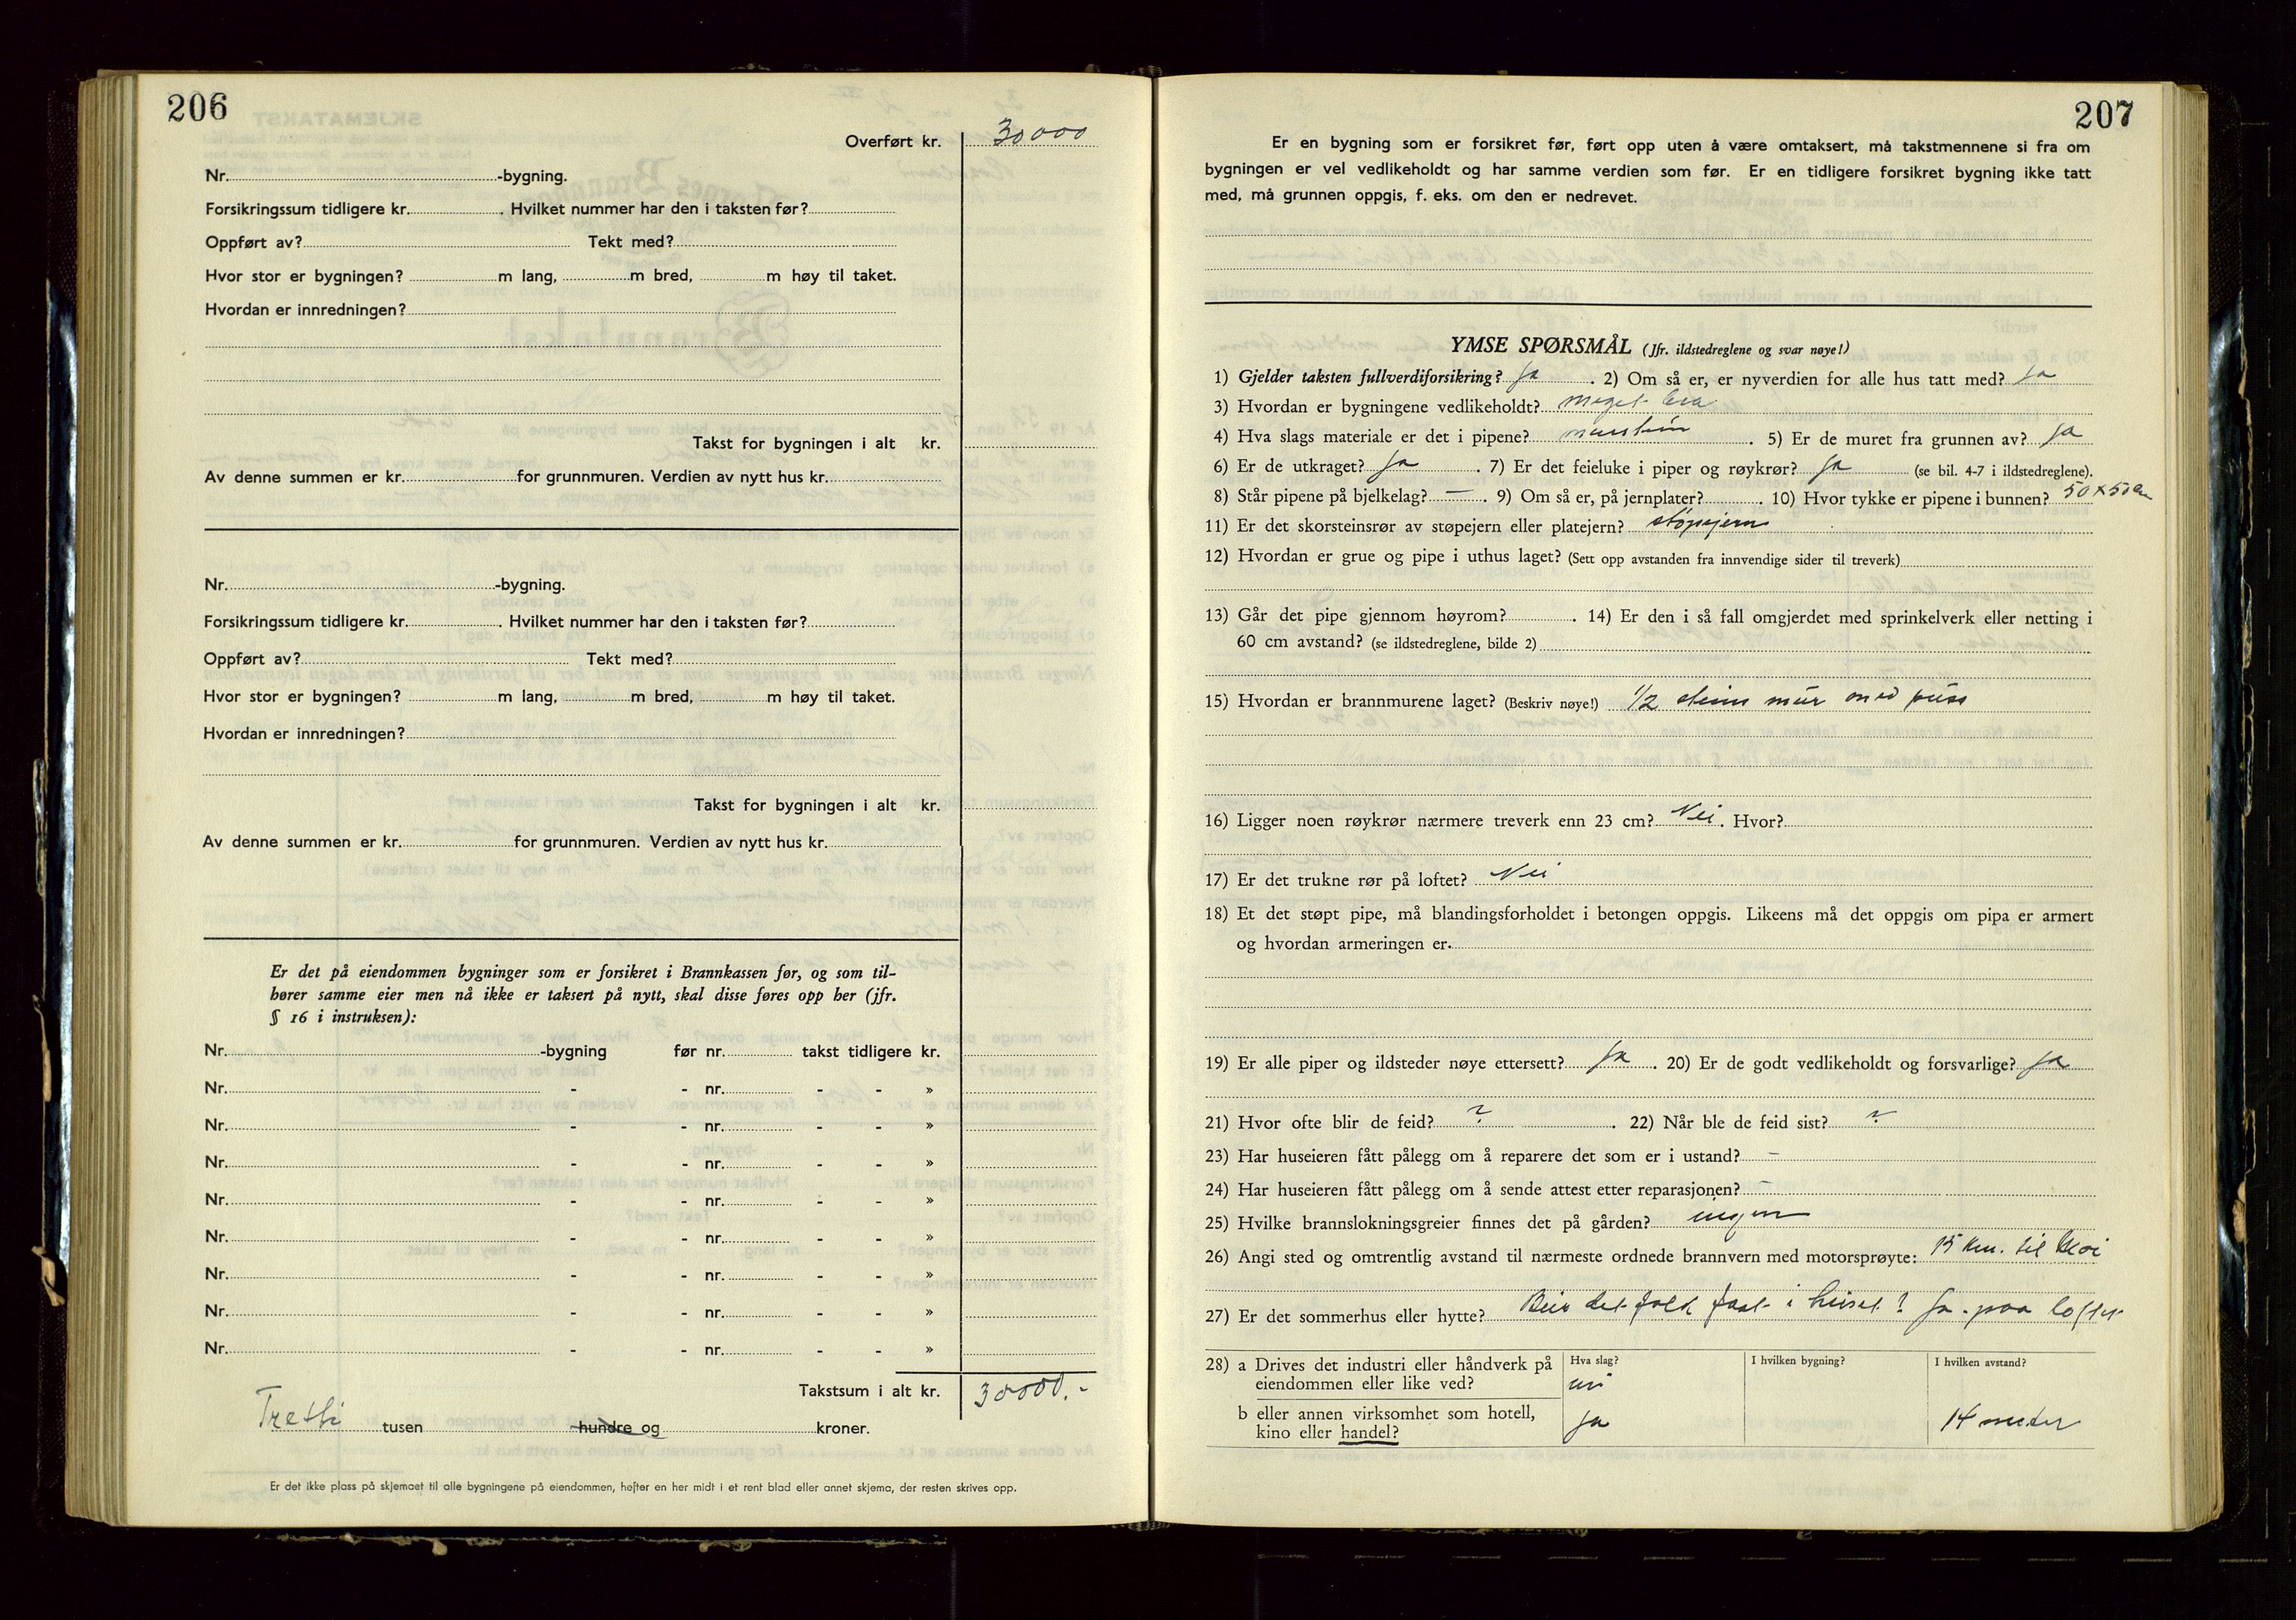 206
Overført kr. 30000
Nr. -bygning.
Forsikringssum tidligere kr. . Hvilket nummer har den i taksten før?
Oppført av? Tekt med?
Hvor stor er bygningen? m lang, m bred, m høy til taket.
Hvordan er innredningen?
Takst for bygningen i alt kr.
Av denne summen er kr. for grunnmuren. Verdien av nytt hus kr.
Nr. -bygning.
Forsikringssum tidligere kr. . Hvilket nummer har den i taksten før?
Oppført av? Tekt med?
Hvor stor er bygningen? m lang, m bred, m høy til taket.
Hvordan er innredningen?
Takst for bygningen i alt kr.
Av denne summen er kr. for grunnmuren. Verdien av nytt hus kr.
Er det på eiendommen bygninger som er forsikret i Brannkassen før, og som til-
hører samme eier men nå ikke er taksert på nytt, skal disse føres opp her (jfr.
§ 16 i instruksen):
Nr. -bygning før nr. takst tidligere kr.
Nr. - - nr. - - »
Nr. - - nr. - - »
Nr. - - nr. - - »
Nr. - - nr. - - »
Nr. - - nr. - - »
Nr. - - nr. - - »
Nr. - - nr. - - »
Nr. - - nr. - - »
Takstsum i alt kr. 30000.-
Tretti tusen hundre og kroner.
Er det ikke plass på skjemaet til alle bygningene på eiendommen, hefter en her midt i et rent blad eller annet skjema, der resten skrives opp.
207
Er en bygning som er forsikret før, ført opp uten å være omtaksert, må takstmennene si fra om
bygningen er vel vedlikeholdt og har samme verdien som før. Er en tidligere forsikret bygning ikke tatt
med, må grunnen oppgis, f. eks. om den er nedrevet.
YMSE SPØRSMÅL (Jfr. ildstedreglene og svar nøye!)
1) Gjelder taksten fullverdiforsikring? Ja . 2) Om så er, er nyverdien for alle hus tatt med? Ja
3) Hvordan er bygningene vedlikeholdt? meget bra
4) Hva slags materiale er det i pipene? murstein . 5) Er de muret fra grunnen av? Ja
6) Er de utkraget? Ja . 7) Er det feieluke i piper og røykrør? Ja (se bil. 4-7 i ildstedreglene).
8) Står pipene på bjelkelag? — . 9) Om så er, på jernplater? . 10) Hvor tykke er pipene i bunnen? 50 x 50 cm
11) Er det skorsteinsrør av støpejern eller platejern? støpejern
12) Hvordan er grue og pipe i uthus laget? (Sett opp avstanden fra innvendige sider til treverk)
13) Går det pipe gjennom høyrom? . 14) Er den i så fall omgjerdet med sprinkelverk eller netting i
60 cm avstand? (se ildstedreglene, bilde 2)
15) Hvordan er brannmurene laget? (Beskriv nøye!) 1/2 steins mur med puss
16) Ligger noen røykrør nærmere treverk enn 23 cm? Nei . Hvor?
17) Er det trukne rør på loftet? Nei
18) Et det støpt pipe, må blandingsforholdet i betongen oppgis. Likeens må det oppgis om pipa er armert
og hvordan armeringen er.
19) Er alle piper og ildsteder nøye ettersett? Ja . 20) Er de godt vedlikeholdt og forsvarlige? Ja
21) Hvor ofte blir de feid? ? . 22) Når ble de feid sist? ?
23) Har huseieren fått pålegg om å reparere det som er i ustand? –
24) Har huseieren fått pålegg om å sende attest etter reparasjonen? –
25) Hvilke brannslokningsgreier finnes det på gården? ingen
26) Angi sted og omtrentlig avstand til nærmeste ordnede brannvern med motorsprøyte: 15 km. til
27) Er det sommerhus eller hytte? Beir det folk fast i huset? Ja - paa loftet
28) a Drives det industri eller håndverk på
eiendommen eller like ved?
Hva slag?
nei
I hvilken bygning?
I hvilken avstand?
b eller annen virksomhet som hotell,
kino eller handel?
Ja
14 meter